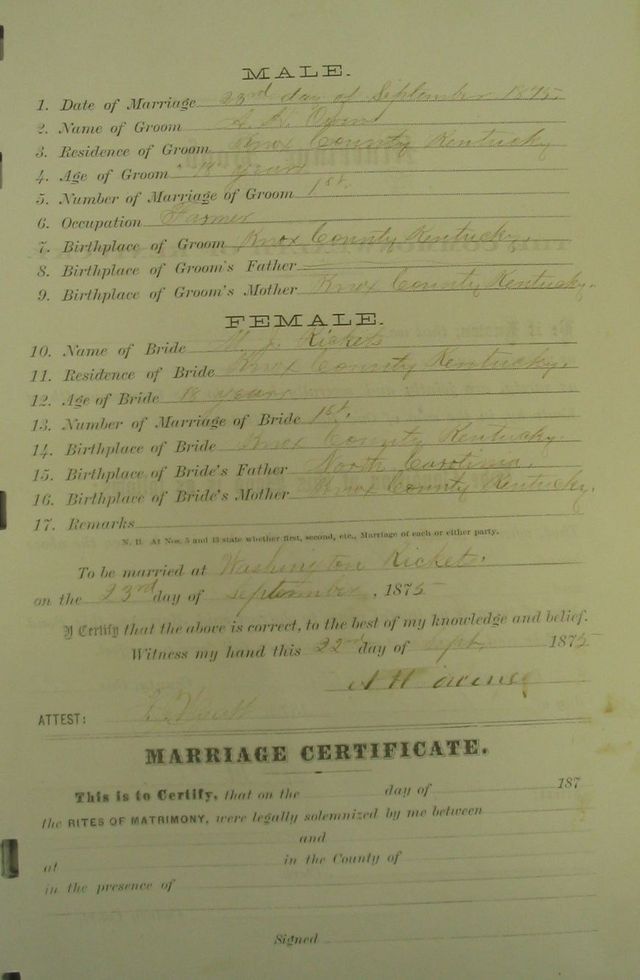 MALE.
1. Date of Marriage 23rd day of September 1875
2. Name of Groom A. H.
3. Residence of Groom Knox County Kentucky
4. Age of Groom years
5. Number of Marriage of Groom 1st.
6. Occupation Farmer
7. Birthplace of Groom Knox County Kentucky
8. Birthplace of Groom's Father
9. Birthplace of Groom's Mother Knox County Kentucky.
FEMALE.
10. Name of Bride Rickets
11. Residence of Bride Knox County Kentucky.
12. Age of Bride 18 years
13. Number of Marriage of Bride 1st.
14. Birthplace of Bride Knox County Kentucky.
15. Birthplace of Bride's Father North Carolinia.
16. Birthplace of Bride's Mother Knox County Kentucky.
17. Remarks
N. B. At Nos. 5 and 13 state whether first, second, etc., Marriage of each or either party.
To be married at Washington Rickets.
on the 23rd day of September, 1875
I Certify that the above is correct, to the best of my knowledge and belief.
Witness my hand this 22nd day of Sept. 1875
A H
ATTEST:
MARRIAGE CERTIFICATE.
This is to Certify, that on the day of 187
the RITES OF MATRIMONY, were legally solemnized by me between
and
at in the County of
in the presence of
Signed